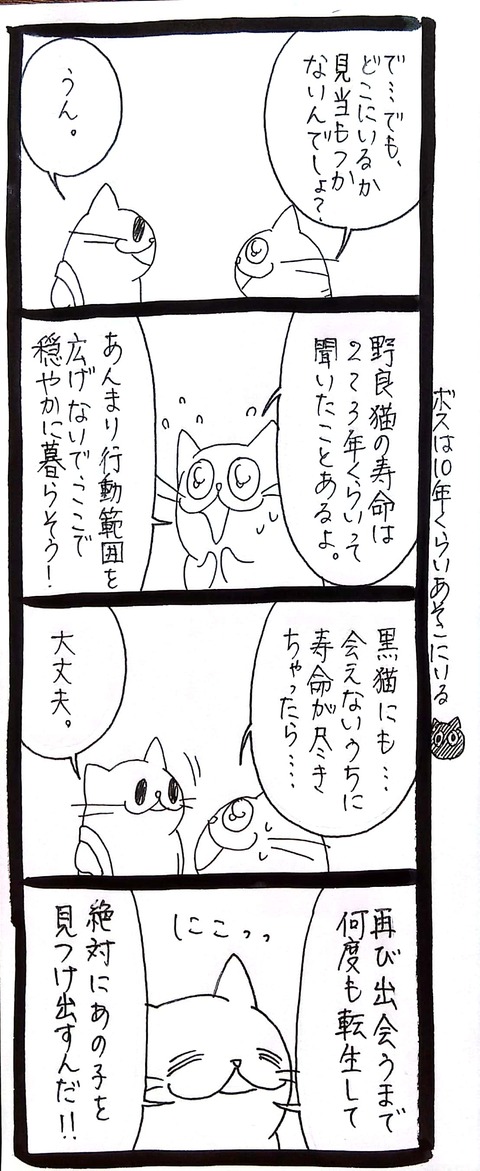 で…でも、
どこにいるか
見当もつか
ないんでしょ？
うん。
野良猫の寿命は
２て３年くらいって
聞いたことあるよ。
あんまり行動範囲を
広げないで、ここで
穏やかに暮らそう！
黒猫にも…
会えないうちに
寿命が尽き
ちゃったら……
大丈夫。
再び出会うまで
何度も転生して
にこっっ
絶対にあの子を
見つけ出すんだ!!
ボスは10年くらいあそこにいる